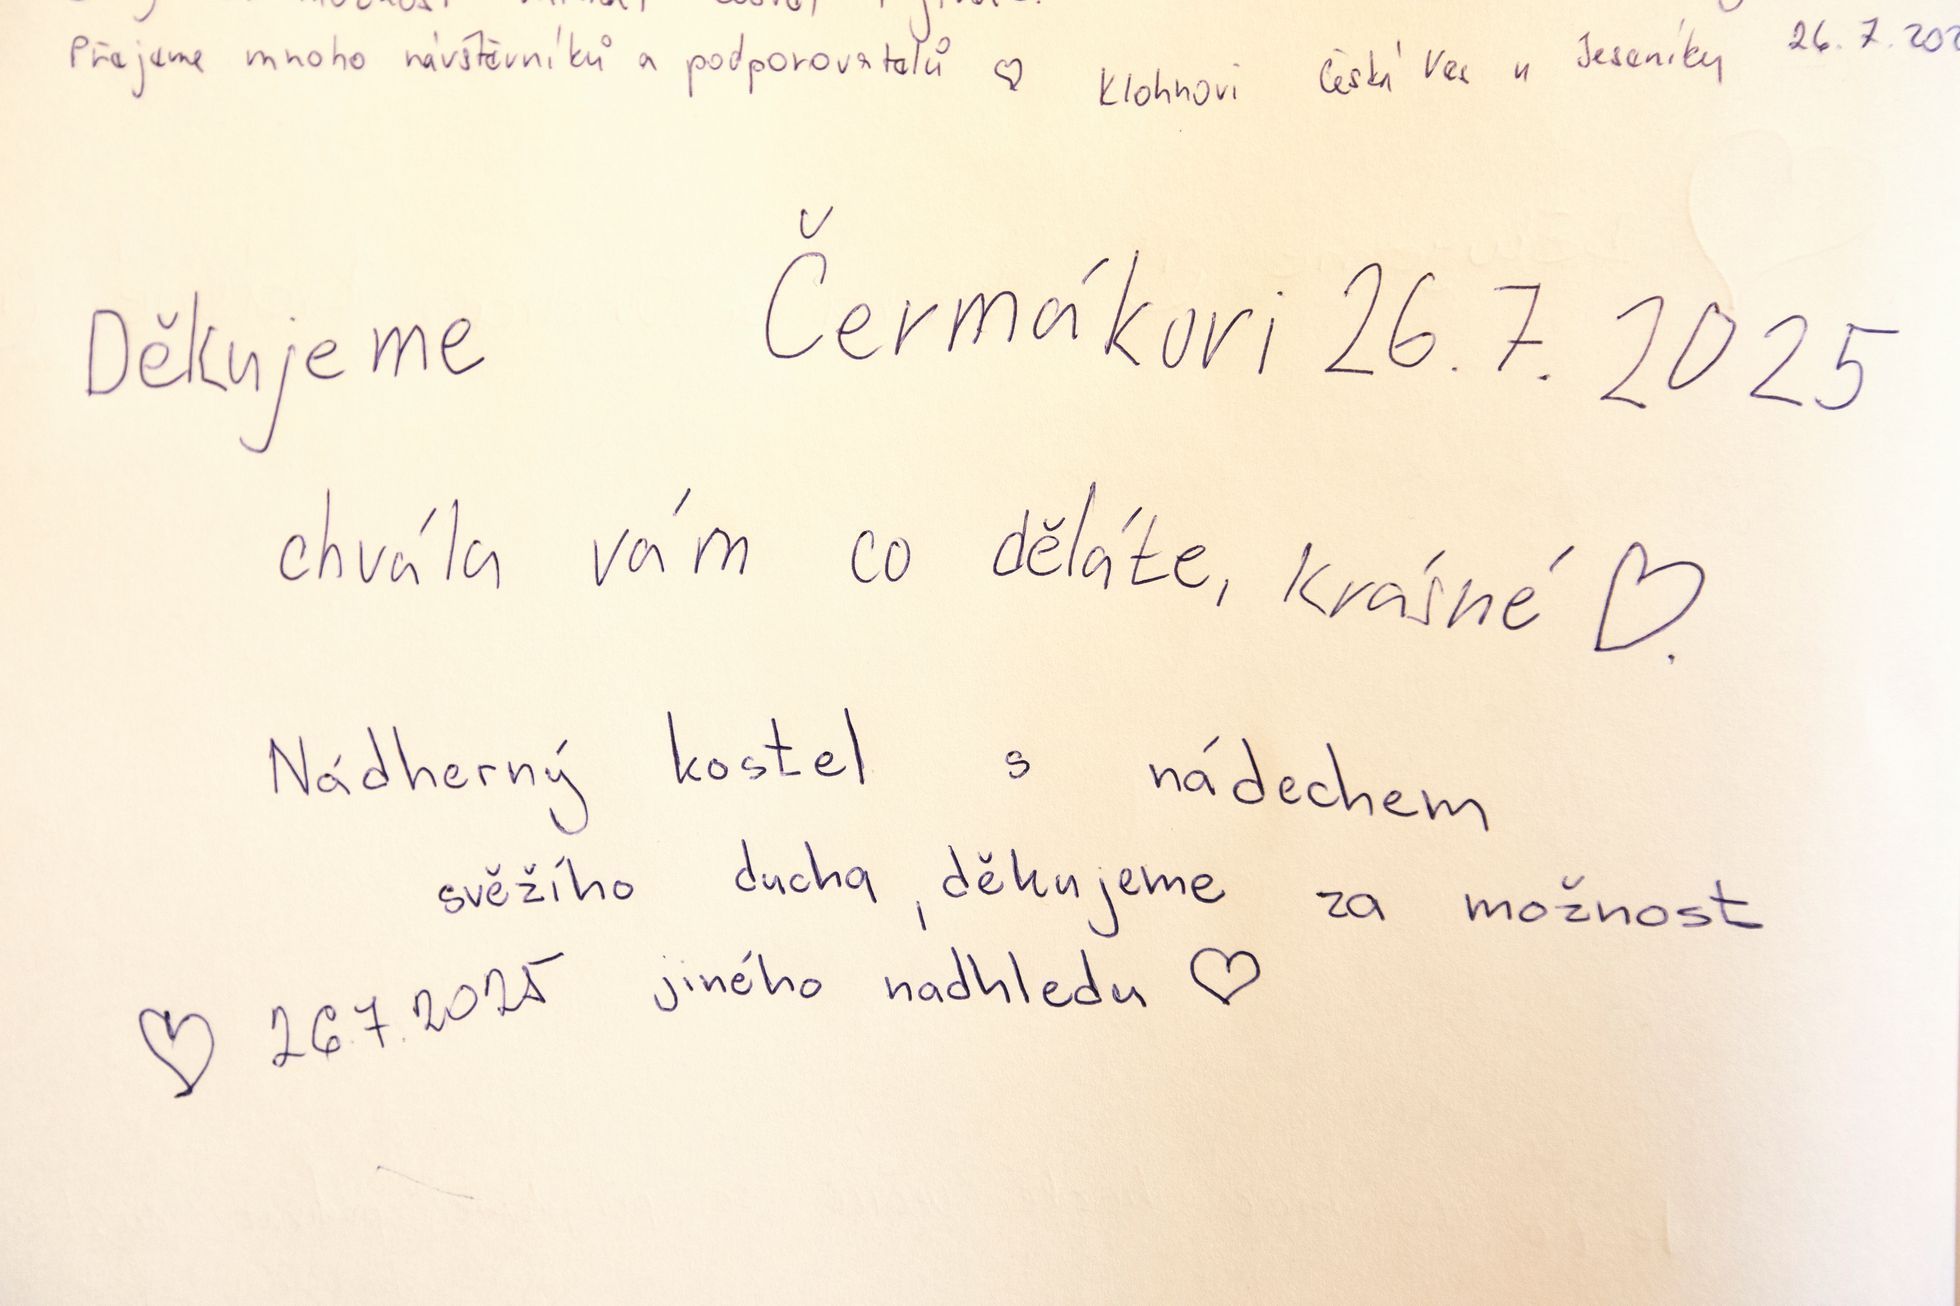 Přejeme mnoho návštěvníků a podporovatelů ♡ Klohnovi Česká Ves u Jeseníku 26.7.202
Děkujeme Čermákovi 26.7.2025
chvála vám co děláte, krásné ♡.
Nádherný kostel s nádechem
svěžího ducha, děkujeme za možnost
jiného nadhledu ♡
♡ 26.7.2025